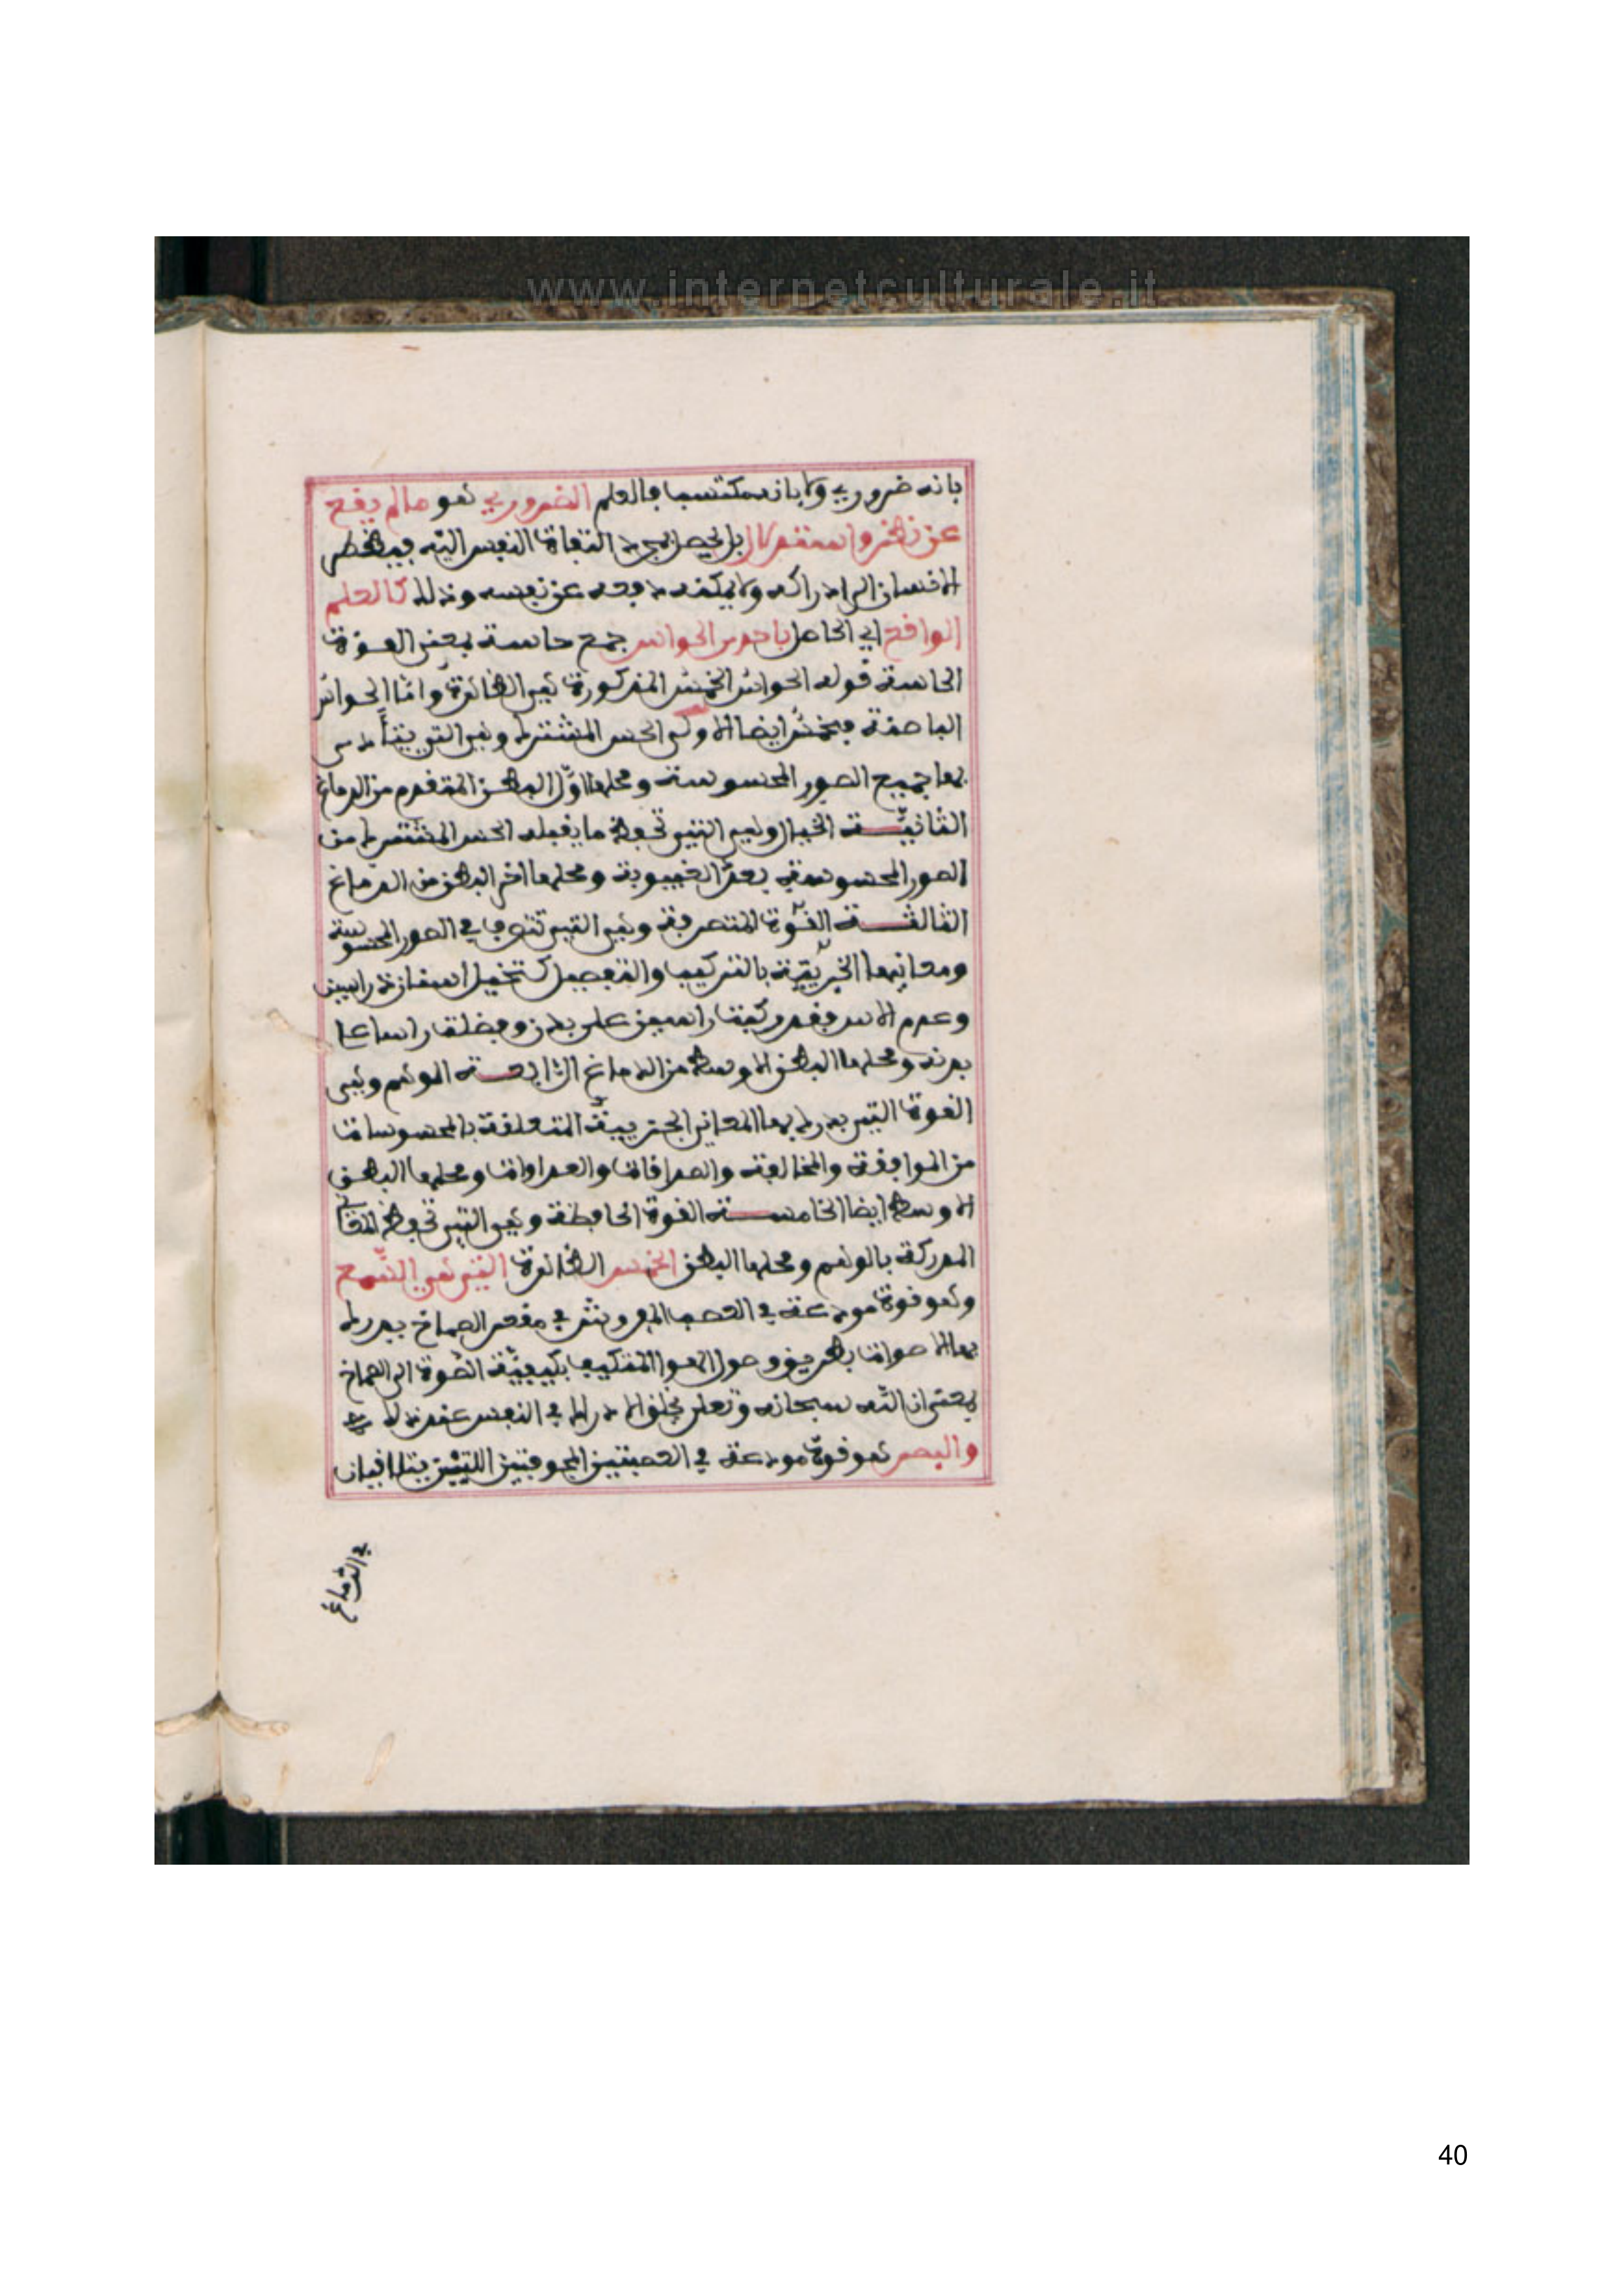 www.internetculturale.it
بانه ضروري ولا بانه مكتسب فالعلم الضروري هو ما لم يقع
عن نظر واستدلال بل يحصل بمجرد التفاة النفس اليه فيضطر
الانسان الى ادراكه ولا يمكنه دفعه عن نفسه وذلك كالعلم
الواقع اي الحاصل باحدى الحواس جمع حاسة بمعنى القوة
الحاسة قوله الحواس الخمس المذكورة هي الظاهرة واما الحواس
الباطنة فخمس ايضا الاولى الحس المشترك وهي التي يتأدى
بها جميع الصور المحسوسة ومحلها اول البطن المقدم من الدماغ
الثانيـــة الخيال وهي التي تحفظ ما يقبله الحس المشترك من
الصور المحسوسة بعد الغيبوبة ومحلها اخر البطن من الدماغ
الثالثـــة القوة المتصرفة وهي التي تتصرف في الصور المحسوسة
ومعانيها الجزيية بالتركيب والتفصيل كتخيل انسان ذي راسين
وعدم الاسد فقد ركبت راسين على بدن وفصلت راسا عن
بدنه ومحلها البطن الاوسط من الدماغ الرابعـــة الوهم وهي
القوة التي يدرك بها المعاني الجزييية المتعلقة بالمحسوسات
من الموافقة والمخالفة والصداقات والعداوات ومحلها البطن
الاوسط ايضا الخامســـة القوة الحافظة وهي التي تحفظ المعاني
المدركة بالوهم ومحلها البطن الخمس الظاهرة التي هي السمع
وهو قوة مودعة في العصب المفروش في مقعر الصماخ يدرك
بها الاصوات بطريق وصول الهوا المتكيف بكيفية الصوة الى الصماخ
بمعنى ان الله سبحانه وتعلى يخلق الادراك في النفس عند ذلك
والبصر هو قوة مودعة في العصبتين المجوفتين اللتين يتلاقيان
في الدماغ
40